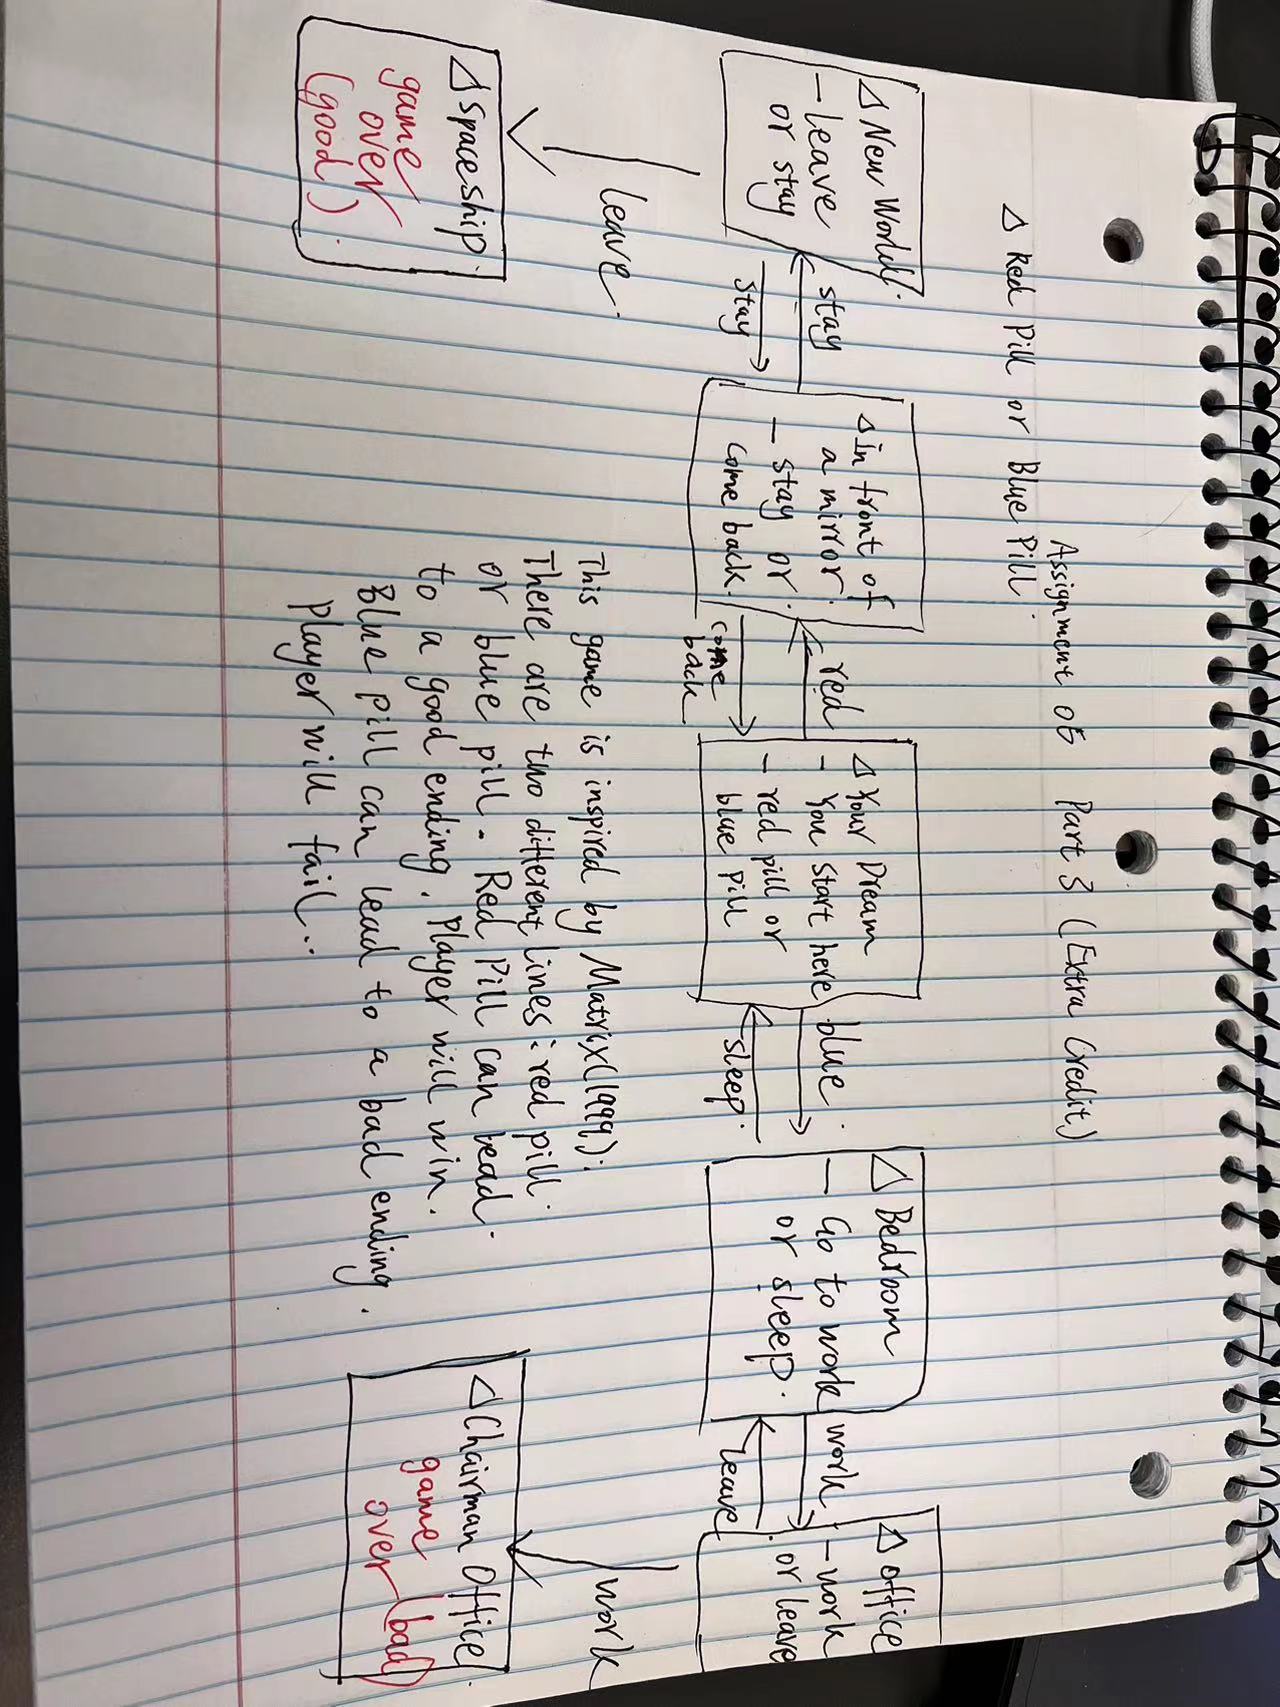 Assignment 05 Part 3 (Extra Credit)
△ Red Pill or Blue Pill.
△ New World.
- leave
or stay
stay
stay
△ in front of
a mirror.
- stay or
come back.
red
come
back
△ Your Dream
- You start here
- red pill or
blue pill
blue.
sleep.
△ Bedroom
- Go to work
or sleep.
work
leave
△ office
- work
or leave
leave.
work
△ Spaceship.
game
over
(good).
△ Chairman Office.
game
over (bad)
This game is inspired by Matrix(1999).
There are two different lines: red pill
or blue pill. Red Pill can lead
to a good ending. Player will win.
Blue pill can lead to a bad ending.
Player will fail..